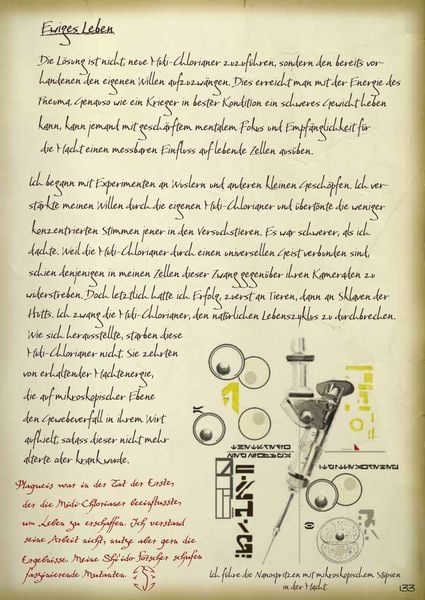 Ewiges Leben
Die Lösung ist nicht, neue Midi-Chlorianer zuzuführen, sondern den bereits vor-
handenen den eigenen Willen aufzuzwängen. Dies erreicht man mit der Energie des
Pneuma. Genauso wie ein Krieger in bester Kondition ein schweres Gewicht heben
kann, kann jemand mit geschärftem mentalem Fokus und Empfänglichkeit für
die Macht einen messbaren Einfluss auf lebende Zellen ausüben.
Ich begann mit Experimenten an Wuslern und anderen kleinen Geschöpfen. Ich ver-
stärkte meinen Willen durch die eigenen Midi-Chlorianer und übertönte die weniger
konzentrierten Stimmen jener in den Versuchstieren. Es war schwerer, als ich
dachte. Weil die Midi-Chlorianer durch einen universellen Geist verbunden sind,
schien denjenigen in meinen Zellen dieser Zwang gegenüber ihren Kameraden zu
widerstreben. Doch letztlich hatte ich Erfolg, zuerst an Tieren, dann an Sklaven der
Hutts. Ich zwang die Midi-Chlorianer, den natürlichen Lebenszyklus zu durchbrechen.
Wie sich herausstellte, starben diese
Midi-Chlorianer nicht. Sie zehrten
von erhaltender Machtenergie,
die auf mikroskopischer Ebene
den Gewebeverfall in ihrem Wirt
aufhielt, sodass dieser nicht mehr
alterte oder krank wurde.
Plagueis war in der Tat der Erste,
der die Midi-Chlorianer beeinflusste,
um Leben zu erschaffen. Ich verstand
seine Arbeit nicht, nutze aber gern die
Ergebnisse. Meine Sith-Forscher schufen
faszinierende Mutanten.
Ich führe die Nanospritzen mit mikroskopischem Stupsen
in der Macht.
133